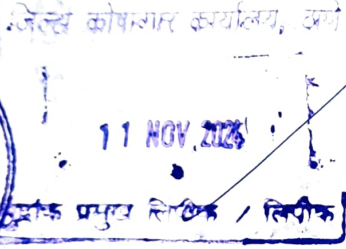 जिल्हा कोषागार कार्यालय, ठाणे
11 NOV 2024
मुद्रांक प्रमुख लिपिक / लिपीक